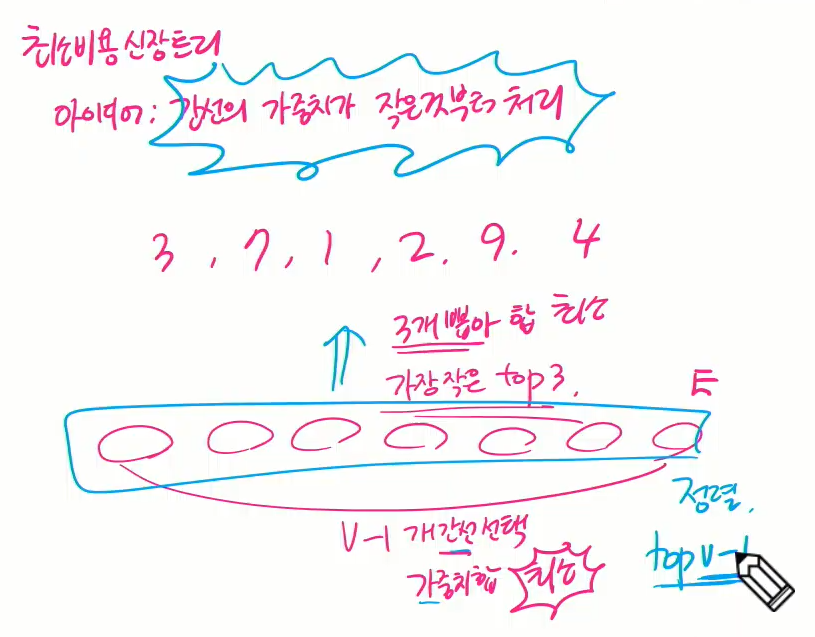 최소비용신장트리
아이디어: 간선의 가중치가 작은것부터 처리
3, 7, 1, 2. 9. 4
3개 뽑아 합 최소
가장작은 top 3.
E
V-1 개간선선택
가중치합 최소
정렬.
top V-1